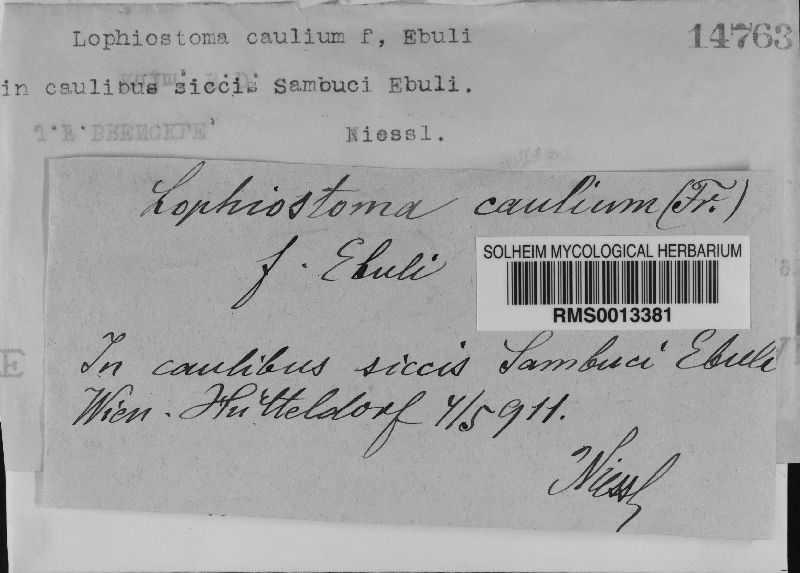 Lophiostoma caulium f, Ebuli
14763
in caulibus siccis Sambuci Ebuli.
Niessl.
Lophiostoma caulium (Fr.)
f. Ebuli
SOLHEIM MYCOLOGICAL HERBARIUM
RMS0013381
In caulibus siccis Sambuci Ebuli
Wien - Hütteldorf 4/5 911.
Niessl